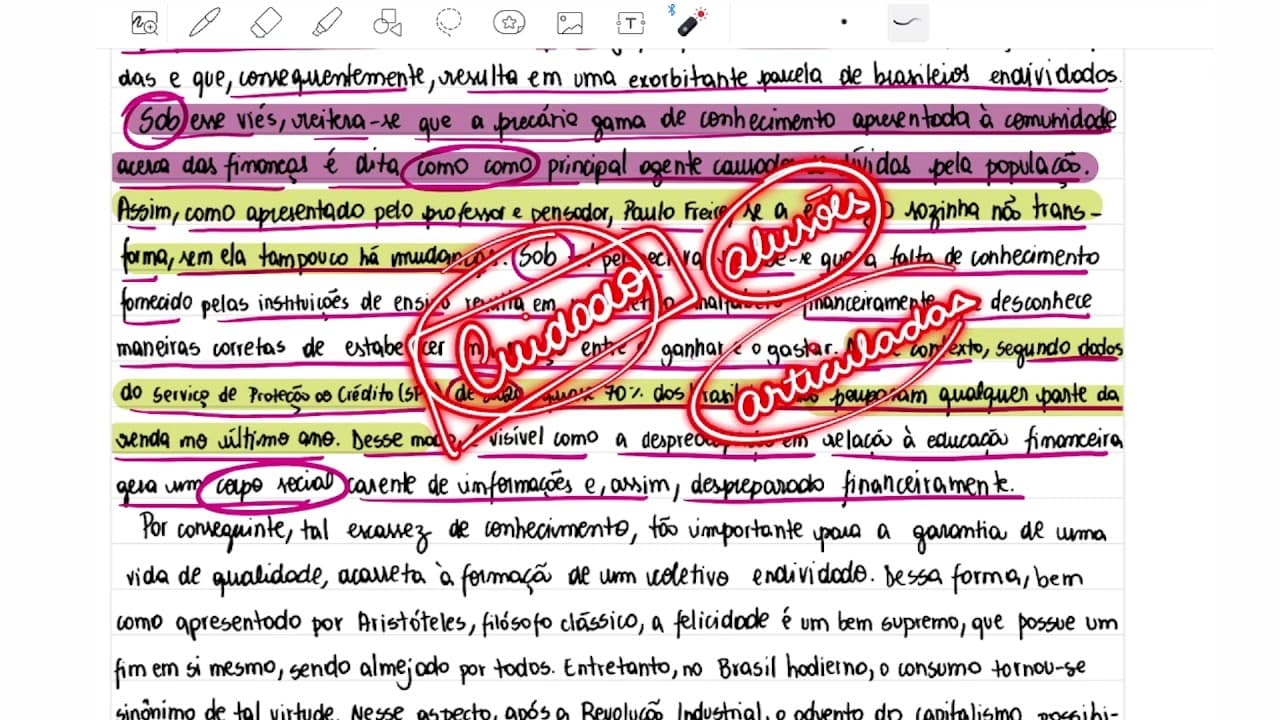 das e que, consequentemente, resulta em uma exorbitante parcela de brasileios endividados.
Sob esse viés, reitera-se que a precário gama de conhecimento apresentada à comunidade
acerca das finanças é dita como como principal agente dívidas pela população.
Assim, como apresentado pelo professor e pensador, Paulo Freire, se a sozinha não trans-
forma, sem ela tampouco há mudanças. Sob que a falta de conhecimento
fornecido pelas instituições de ensino resulta em financeiramente desconhece
maneiras corretas de estabelecer entre o ganhar e o gastar. contexto, segundo dados
do Serviço de Proteção ao Crédito 70% dos pouparam qualquer parte da
renda no último ano. Desse modo, é visível como a em relação à educação financeira
gera um corpo social carente de informações e, assim, despreparado financeiramente.
Por conseguinte, tal escassez de conhecimento, tão importante para a garantia de uma
vida de qualidade, acarreta à formação de um coletivo endividado. Dessa forma, bem
como apresentado por Aristóteles, filósofo clássico, a felicidade é um bem supremo, que possue um
fim em si mesmo, sendo almejado por todos. Entretanto, no Brasil hodierno, o consumo tornou-se
sinônimo de tal virtude. Nesse aspecto, após a Revolução Industrial, o advento do capitalismo possibi-
Cuidado
alusões
articuladas
T